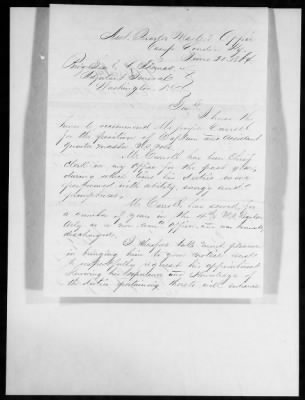 Camp Condor Ky.
June 21, 1864
Brig Gen L. Thomas
Adjutant General
Washington D.C.
Genl
I have the
honor to recommend Mr Carroll
for the position of Captain and Assistant
Quarter Master
Mr. Carroll has been Chief
Clerk in my Office for the past year
during which time his duties were
performed with ability, energy and
promptness.
Mr. Carroll has served for
a number of years in the 4th U.S. Regular
Arty as a non com'd officer, and was honorably
discharged.
I therefore take much pleasure
in bringing him to your notice and
respectfully request his appointment
knowing his experience and knowledge of
the duties pertaining thereto will